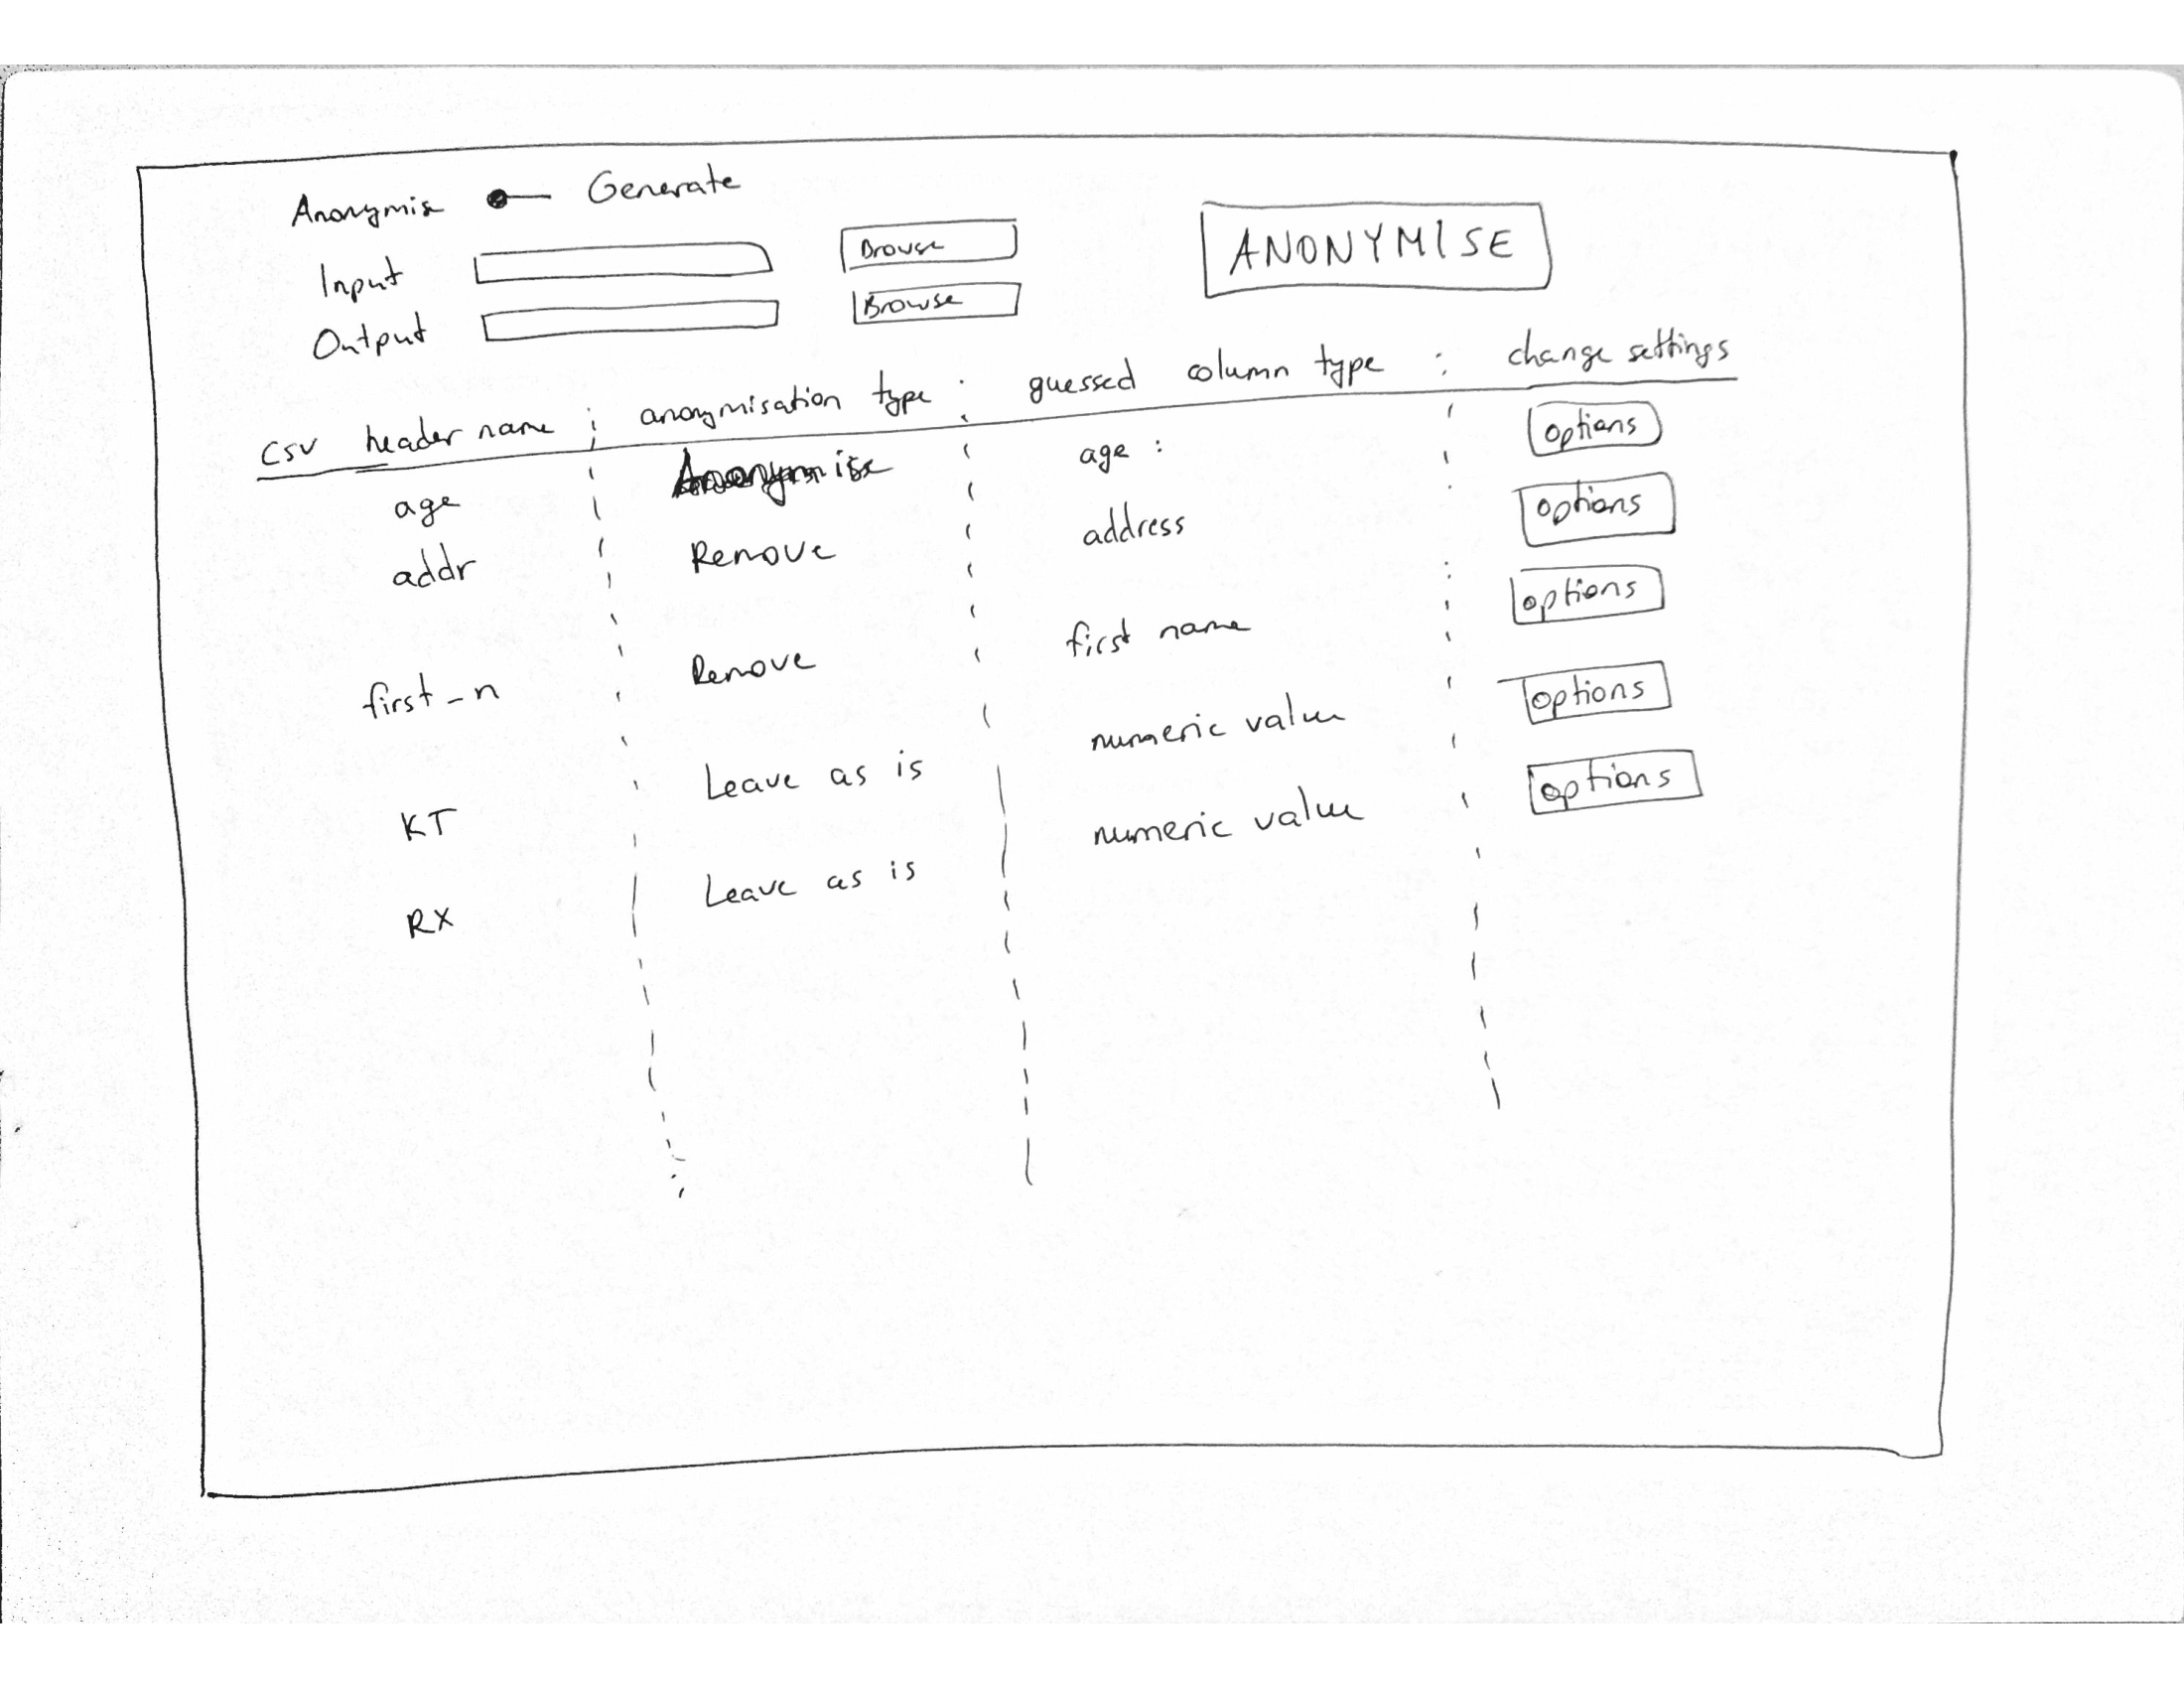 Anonymise Generate
Input Browse
ANONYMISE
Output Browse
csv header name anonymisation type guessed column type change settings
age Anonymise age : options
addr Remove address options
first_n Remove first name options
KT Leave as is numeric value options
RX Leave as is numeric value options